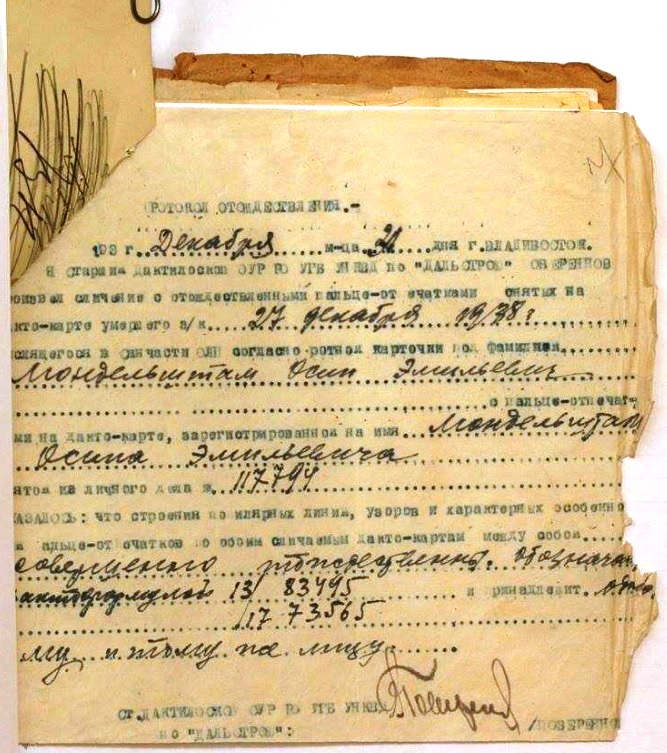 РОТОКОЛ ОТОЖДЕСТВЛЕНИЯ.-
193 г. Декабря м-ца 31 дня г. ВЛАДИВОСТОК.
Я Старшин Дактилоскоп ОУР РО УГБ УНКВД по "ДАЛЬСТРОЮ" ПОВЕРЕННОВ
роизвел сличение с отождественными пальце-от ечатками снятых на
акто-карте умершего з/к 27 декабря 1938 г
сящегося в санчасти ОЛП согласно ротной карточки под фамилией
Мондельштам Осип Эмильевич
с пальце-отпечат-
ми на дакто-карте, зарегистрированной на имя Мондельштам
Осипа Эмильевича
ятой из личного дела № 117794
КАЗАЛОСЬ: что строения по илярных линий, узоров и характерных особенно
альце-от ечатков по обоим сличаемым дакто-картам между собой
совершенно тождественны. обозначен
актоформулой 13/ 83495 и принадлежит одно
/17 73565
му и тому же лицу
СТ. ДАКТИЛОСКОП ОУР РО УГБ УНКВД /ПОВЕРЕННО
по "ДАЛЬСТРОЮ":